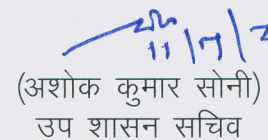 11/7/
(अशोक कुमार सोनी)
उप शासन सचिव